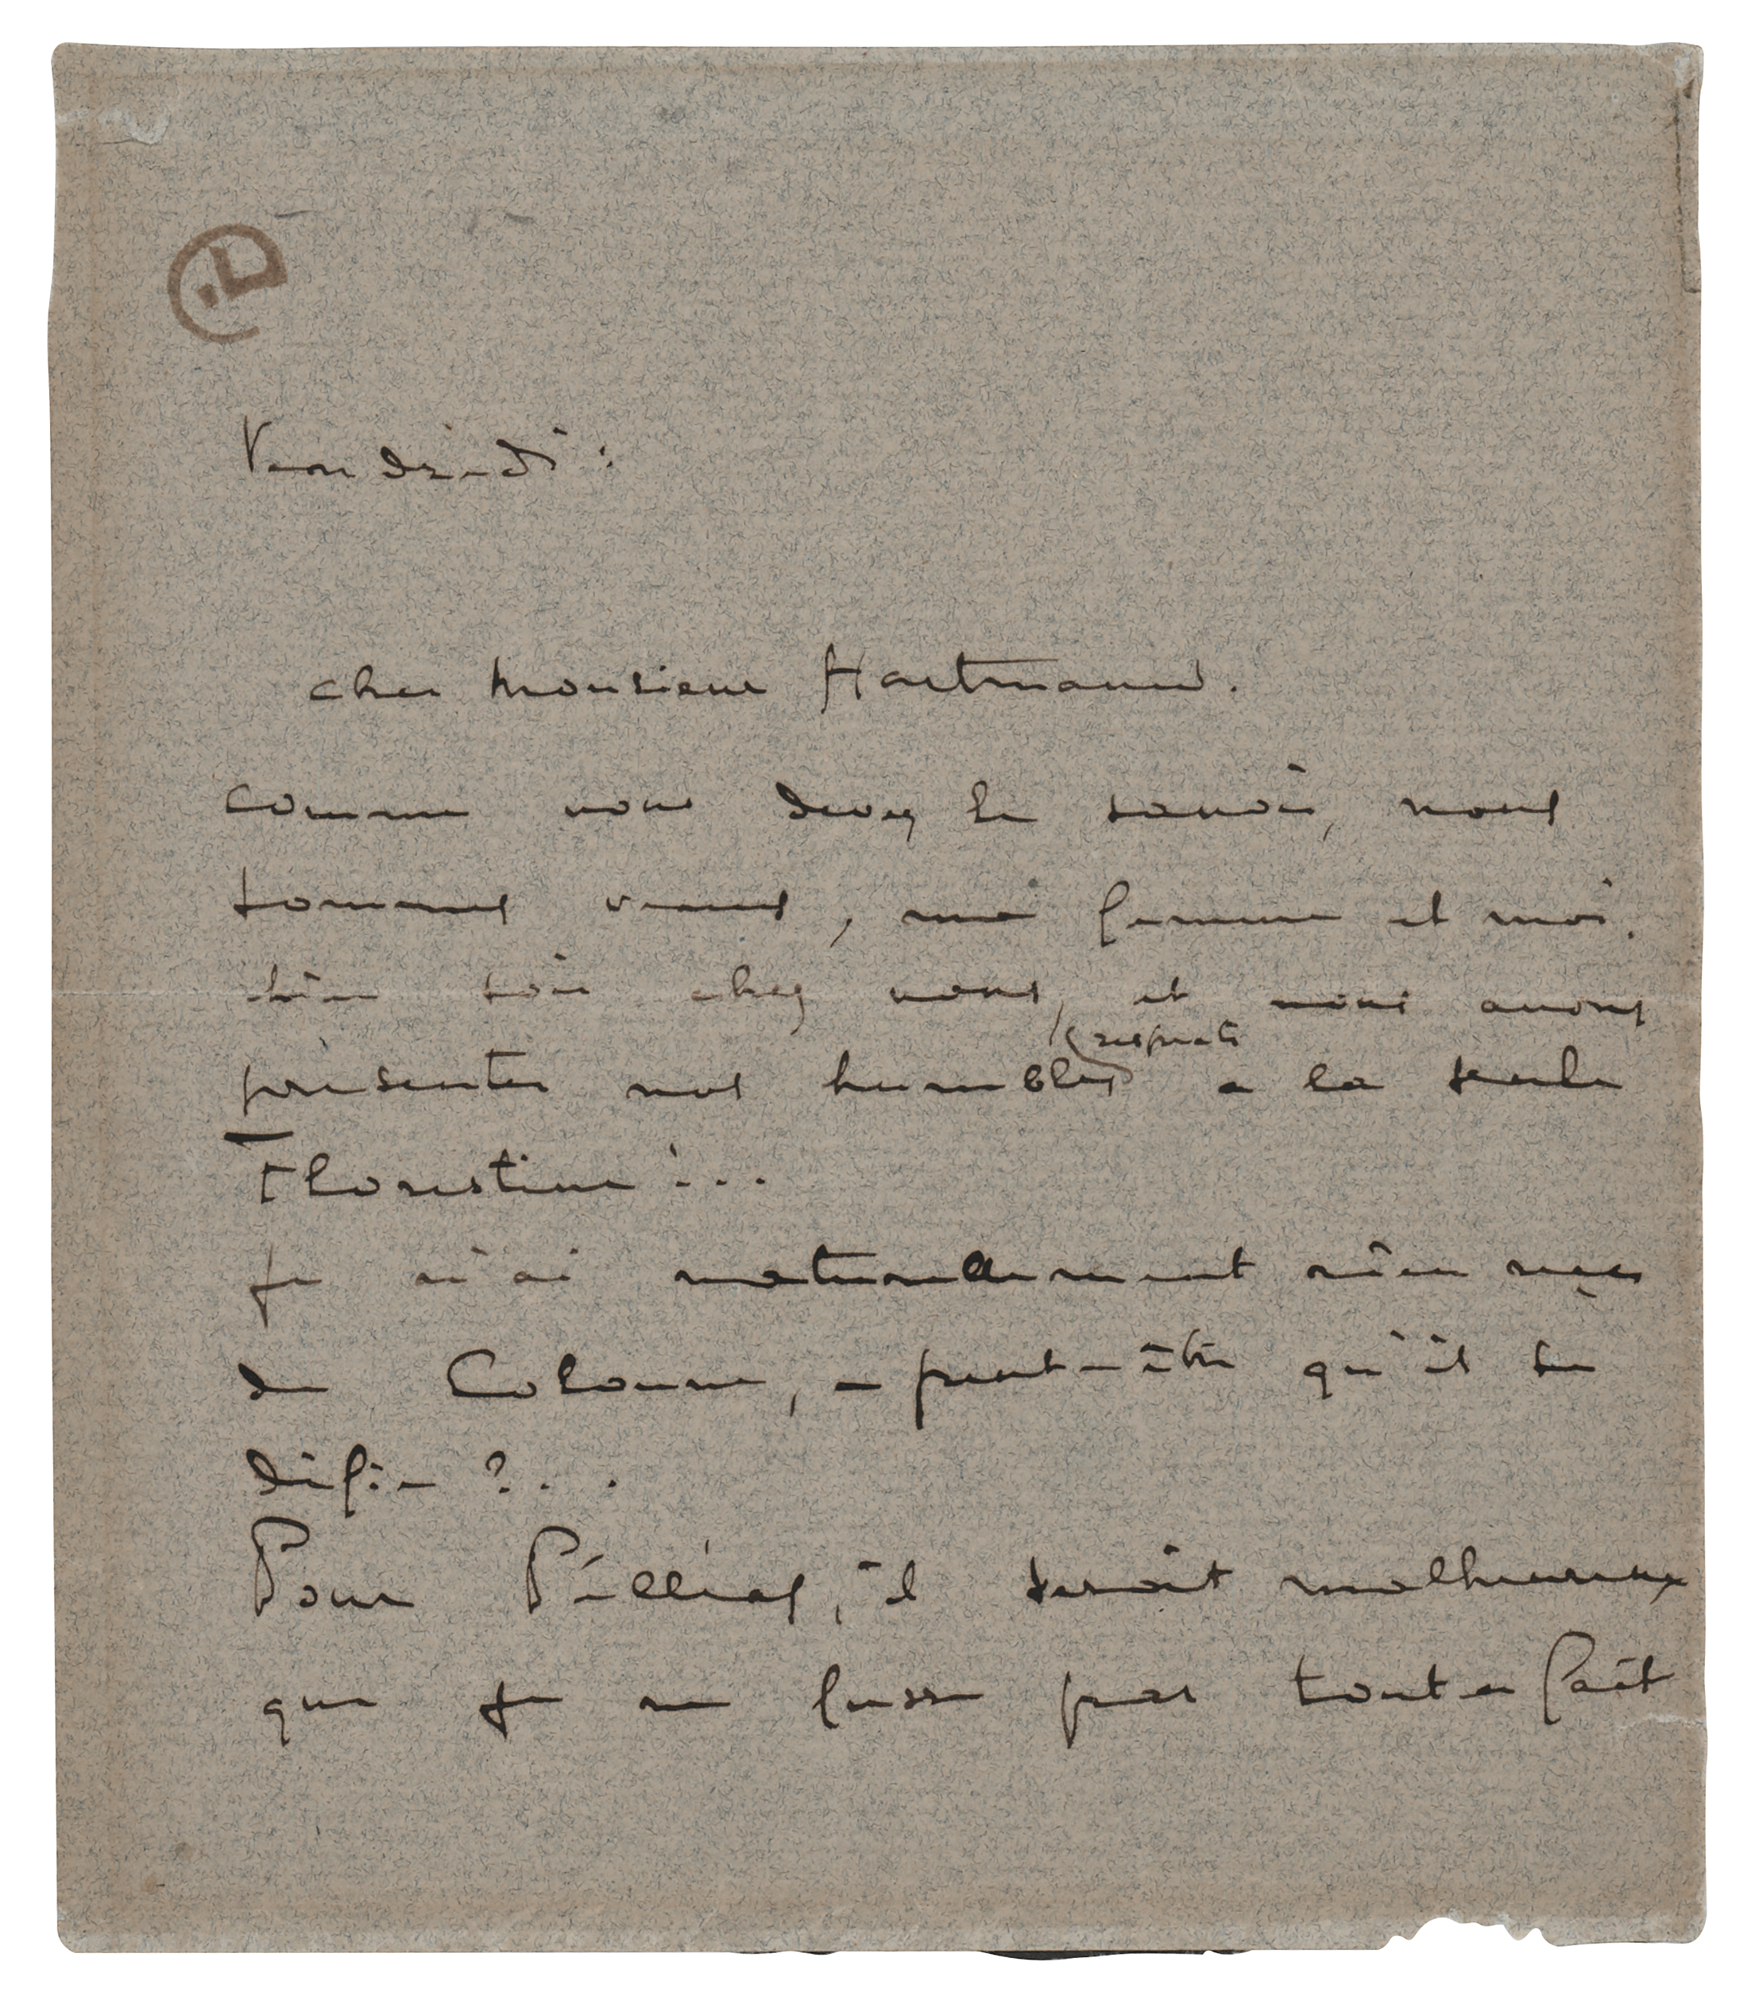 Vendredi :
cher Monsieur Hartmann.
comme vous devez le savoir, nous
sommes venus, ma femme et moi.
hier soir chez vous, et nous avons
respects
présenter nos humbles a la seule
Florestine !...
Je n'ai naturellement rien reçu
de Colonne, — peut-être qu'il se
défie ?...
Pour Pélléas, il serait malheureux
que je ne fusse pas tout a fait